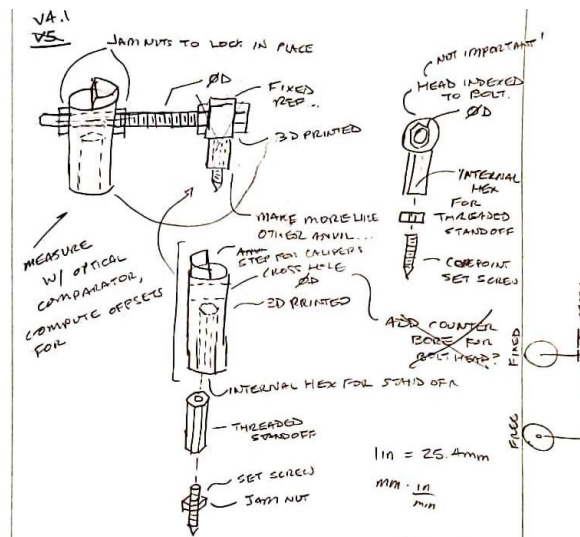 V4.1
V5
JAM NUTS TO LOCK IN PLACE
ØD
FIXED
REF..
3D PRINTED
MAKE MORE LIKE
OTHER ANVIL...
MEASURE
W/ OPTICAL
COMPARATOR,
COMPUTE OFFSETS
FOR
STEP FOR CALIPERS
CROSS HOLE
ØD
3D PRINTED
INTERNAL HEX FOR STANDOFF
THREADED
STANDOFF
SET SCREW
JAM NUT
NOT IMPORTANT!
HEAD INDEXED
TO BOLT.
ØD
INTERNAL
HEX
FOR
THREADED
STANDOFF
CONEPOINT
SET SCREW
ADD COUNTER
BORE FOR
BOLT HEAD?
FIXED
FREE
1in = 25.4mm
mm · in
mm